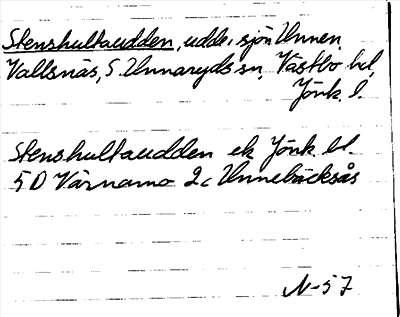 Stenshultaudden, udde i sjön Unnen,
Vallsnäs, S. Unnaryds sn, Västbo hd,
Jönk. l.
Stenshultaudden ek Jönk. bl.
5 D Värnamo 2 c Unnebäcksås
N-57